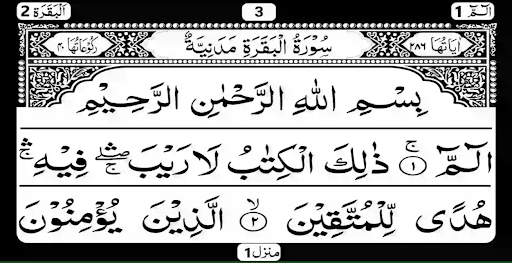 الٓمّٓ 1
3
اَلْبَقَرَة 2
اٰیَاتُهَا ٢٨٦
سُوْرَةُ الْبَقَرَةِ مَدَنِيَّةٌ
رُكُوْعَاتُهَا ٤٠
بِسْمِ اللهِ الرَّحْمٰنِ الرَّحِيْمِ
الٓمّٓ ۚ ١ ذٰلِكَ الْكِتٰبُ لَا رَيْبَ ۛۖۚ فِيْهِ ۛۚ
هُدًى لِّلْمُتَّقِيْنَ ۙ ٢ الَّذِيْنَ يُؤْمِنُوْنَ
منزل 1